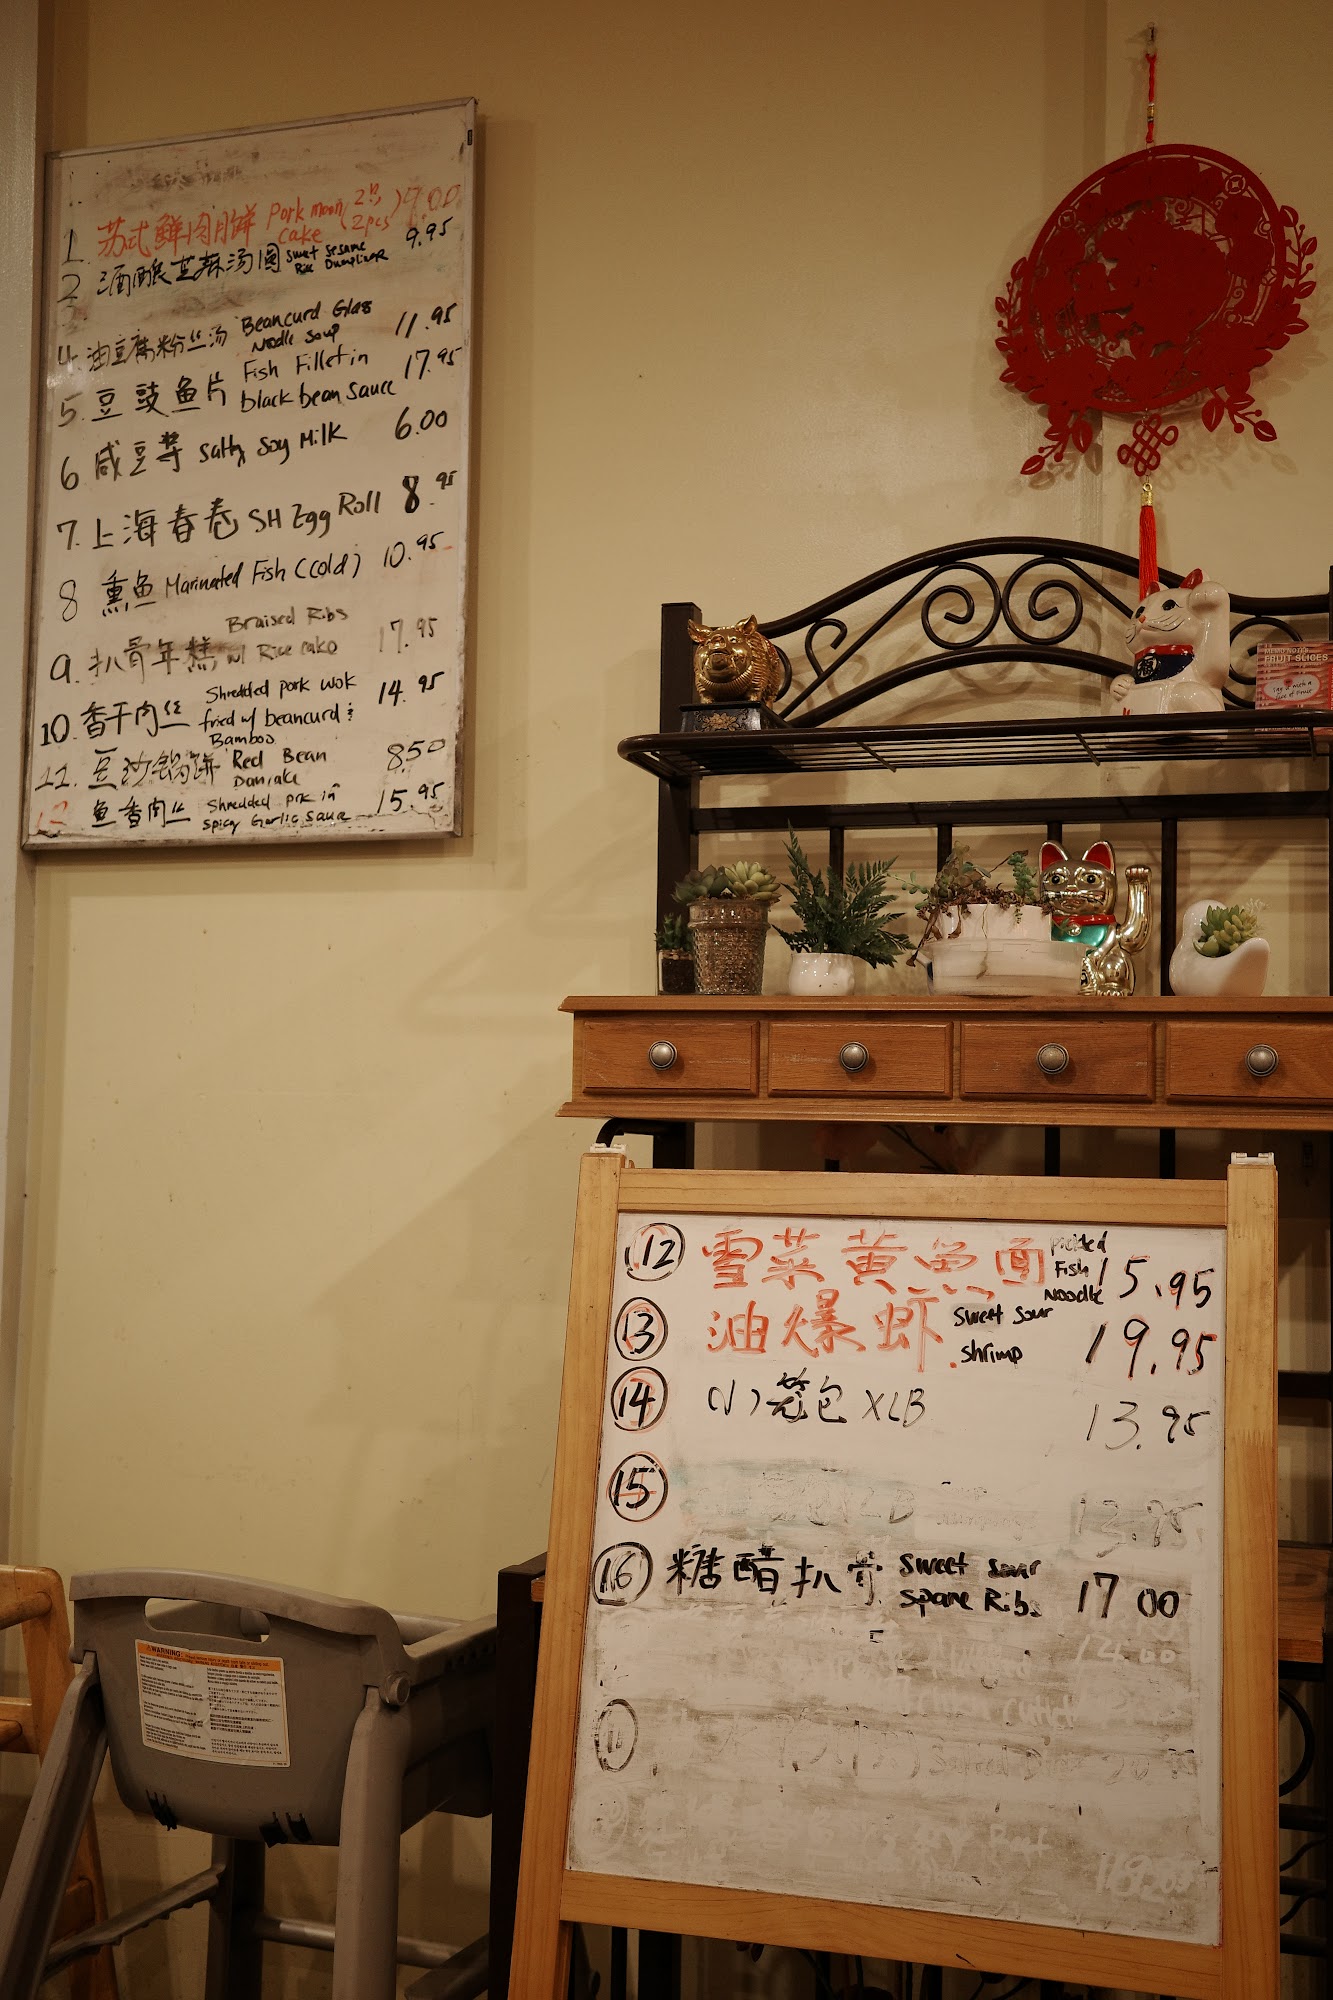 1. 苏式鲜肉月饼 Pork moon cake (2只 2pcs) 7.00
2 酒酿芝麻汤圆 Sweet Sesame Rice Dumpling 9.95
4. 油豆腐粉丝汤 Beancurd Glass Noodle Soup 11.95
5. 豆豉鱼片 Fish Fillet in black bean sauce 17.95
6 咸豆浆 Salty Soy Milk 6.00
7. 上海春卷 SH Egg Roll 8.95
8 熏鱼 Marinated Fish (Cold) 10.95
9. 扒骨年糕 Braised Ribs w/ Rice cake 17.95
10. 香干肉丝 Shredded pork wok fried w/ beancurd & Bamboo 14.95
11. 豆沙锅饼 Red Bean Pancake 8.50
12 鱼香肉丝 Shredded pork in Spicy Garlic Sauce 15.95
MEMO NOTES
FRUIT SLICES
12 雪菜黄鱼面 Pickled Fish Noodle 15.95
13 油爆虾 Sweet Sour Shrimp 19.95
14 小笼包 XLB 13.95
15 13.95
16 糖醋扒骨 Sweet Sour Spare Ribs 17.00
14.00
WARNING: